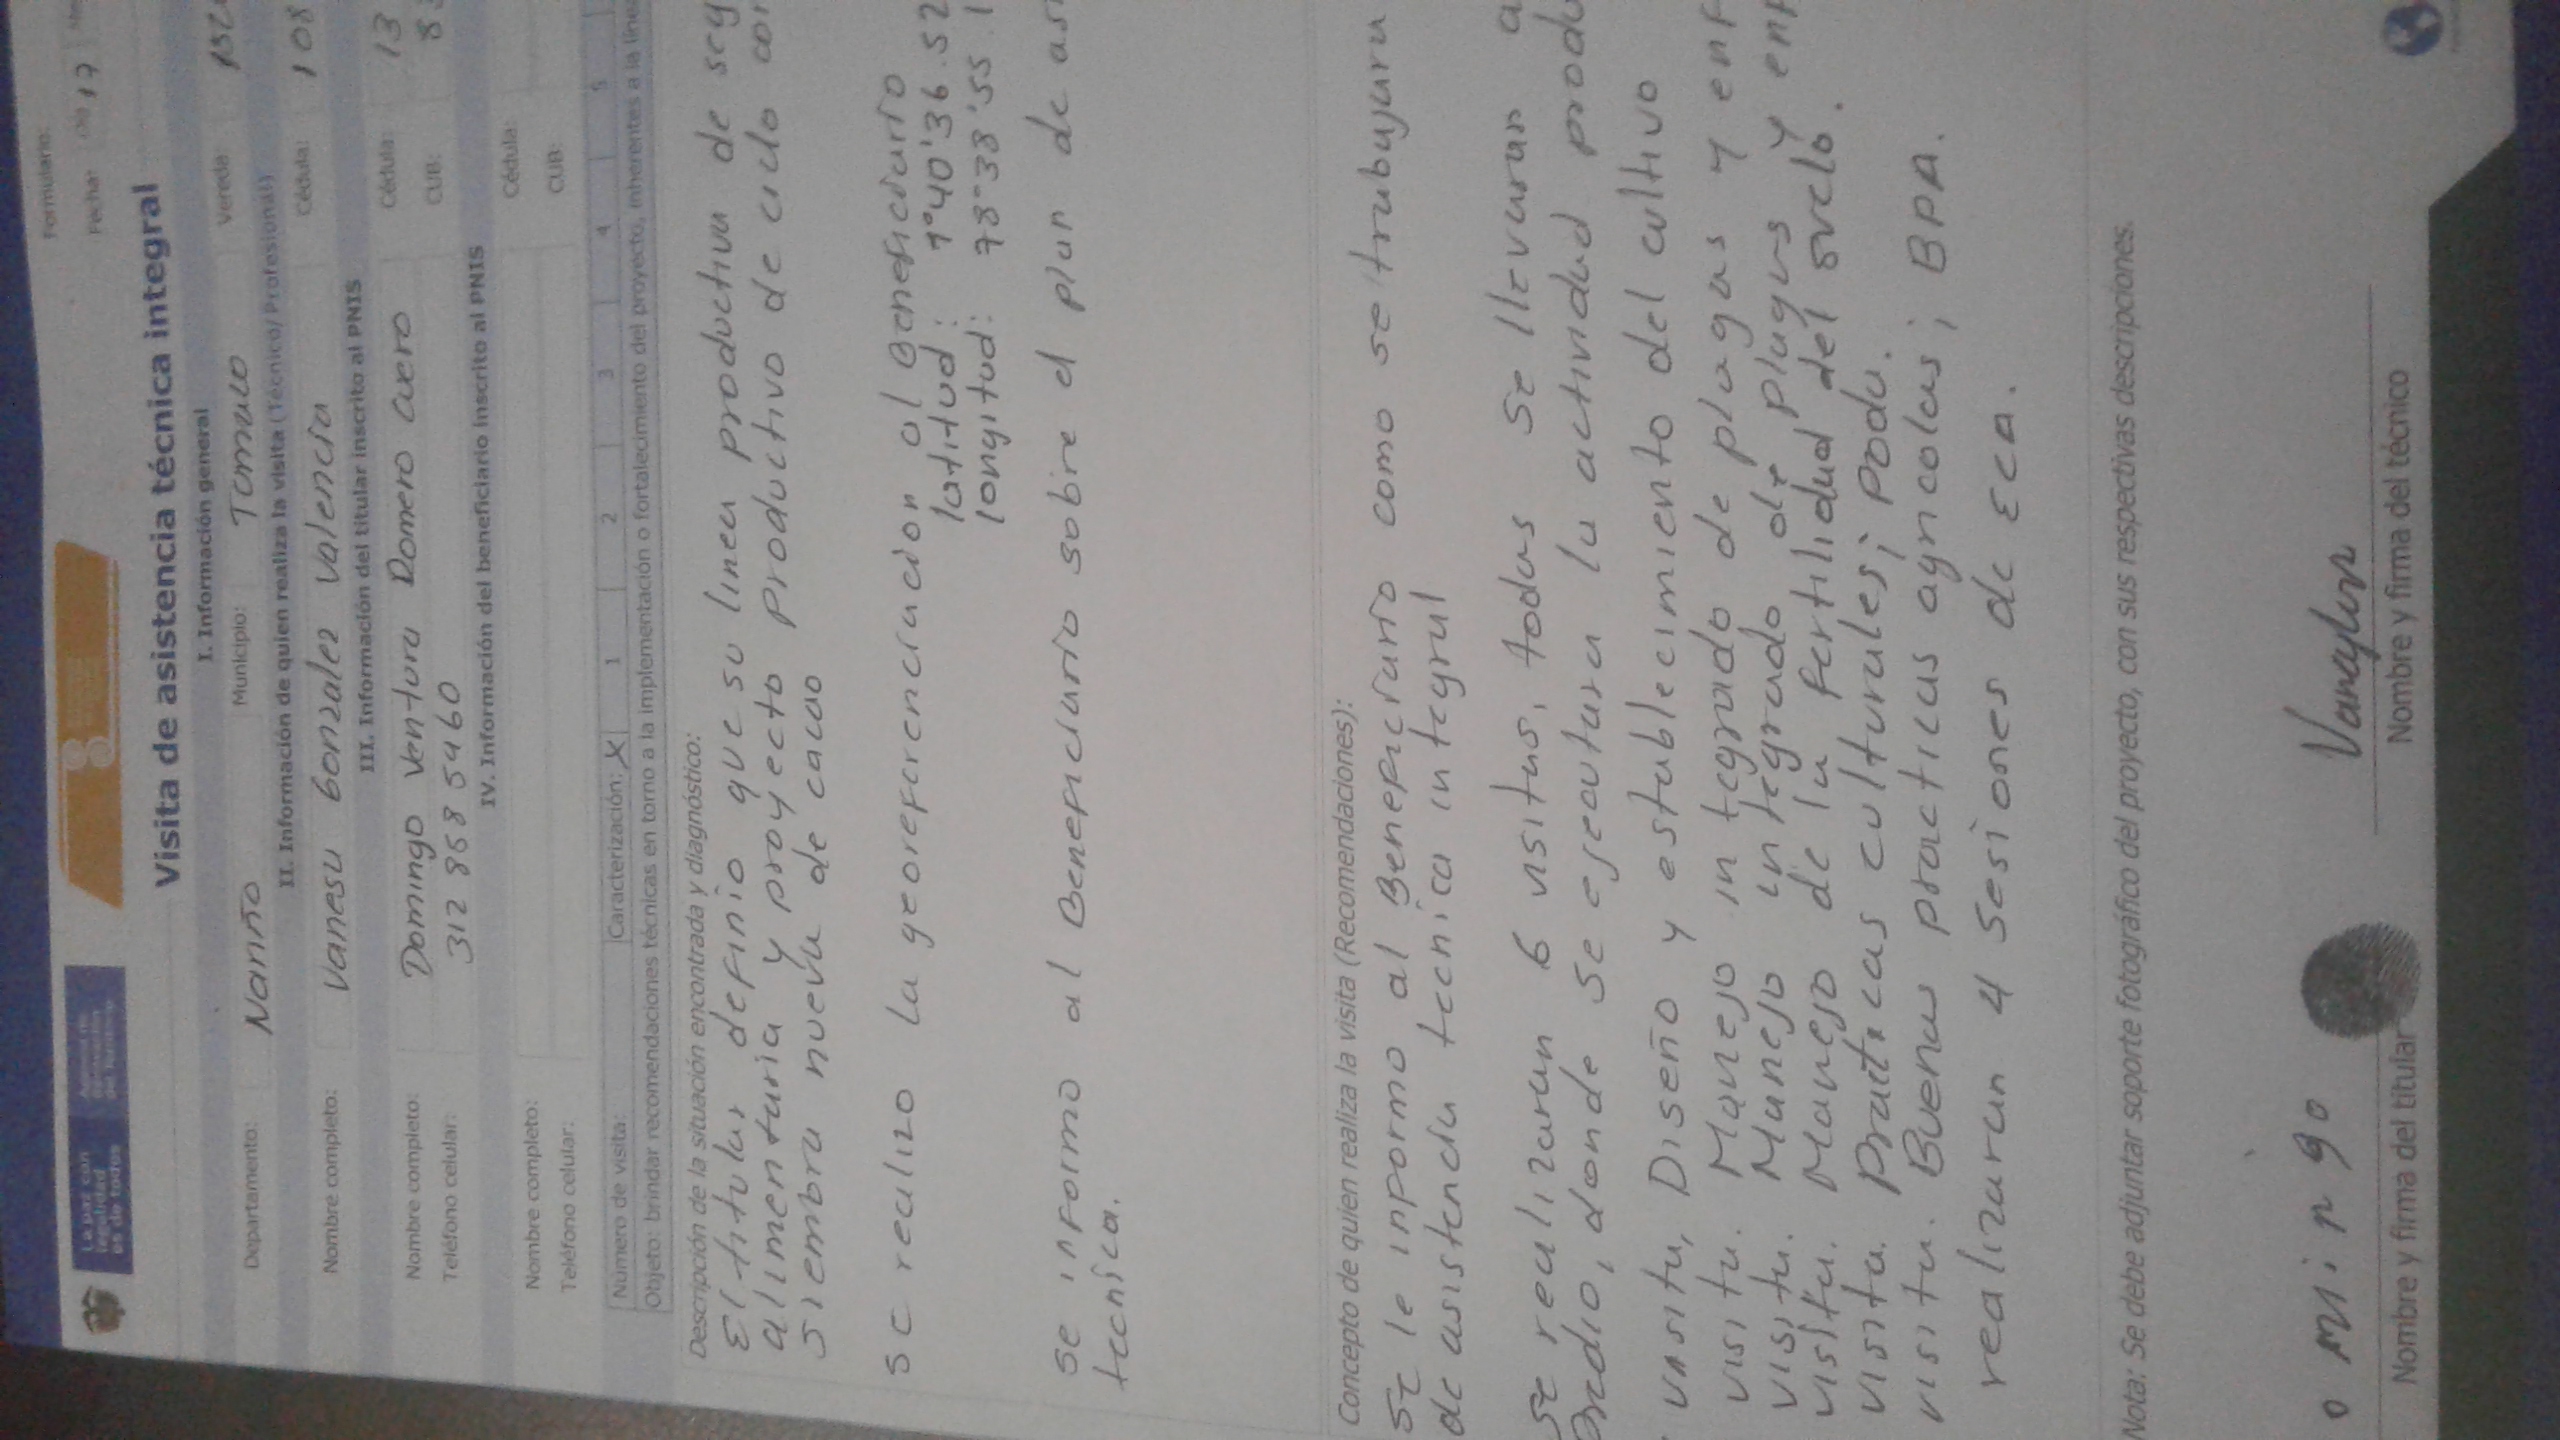 Formulario:
Fecha: 17
La paz con legalidad es de todos
Visita de asistencia técnica integral
I. Información general
Departamento: Nariño Municipio: Tumaco Vereda:
II. Información de quien realiza la visita (Técnico/ Profesional)
Nombre completo: Vanesa Gonzalez Valencia Cédula: 108
III. Información del titular inscrito al PNIS
Nombre completo: Domingo Ventura Romero Cuero Cédula: 13
Teléfono celular: 312 858 5460 CUB:
IV. Información del beneficiario inscrito al PNIS
Nombre completo: Cédula:
Teléfono celular: CUB:
Número de visita: Caracterización: X 1 2 3 4 5
Objeto: brindar recomendaciones técnicas en torno a la implementación o fortalecimiento del proyecto, inherentes a la línea
Descripción de la situación encontrada y diagnóstico:
El titular definio que su linea productiva de seg
alimentaria y proyecto productivo de ciclo cor
siembra nueva de cacao
se realizo la georeferenciacion al Beneficiario
latitud: 1°40'36.52
longitud: 78°38'55.1
se informo al Beneficiario sobre el plan de asi
tecnica.
Concepto de quien realiza la visita (Recomendaciones):
Se le informo al Beneficiario como se trabajara
de asistencia tecnica integral
se realizaran 6 visitas, todas se llevaran a
predio, donde se ejecutara la actividad produ
visita, Diseño y establecimiento del cultivo
visita. Manejo integrado de plagas y enf
visita. Manejo integrado de plagas y enf
visita. Manejo de la fertilidad del suelo.
visita. Practicas culturales; poda.
visita. Buenas practicas agricolas; BPA.
realizaran 4 sesiones de ECA.
Nota: Se debe adjuntar soporte fotográfico del proyecto, con sus respectivas descripciones.
o mingo
Nombre y firma del titular
Nombre y firma del técnico